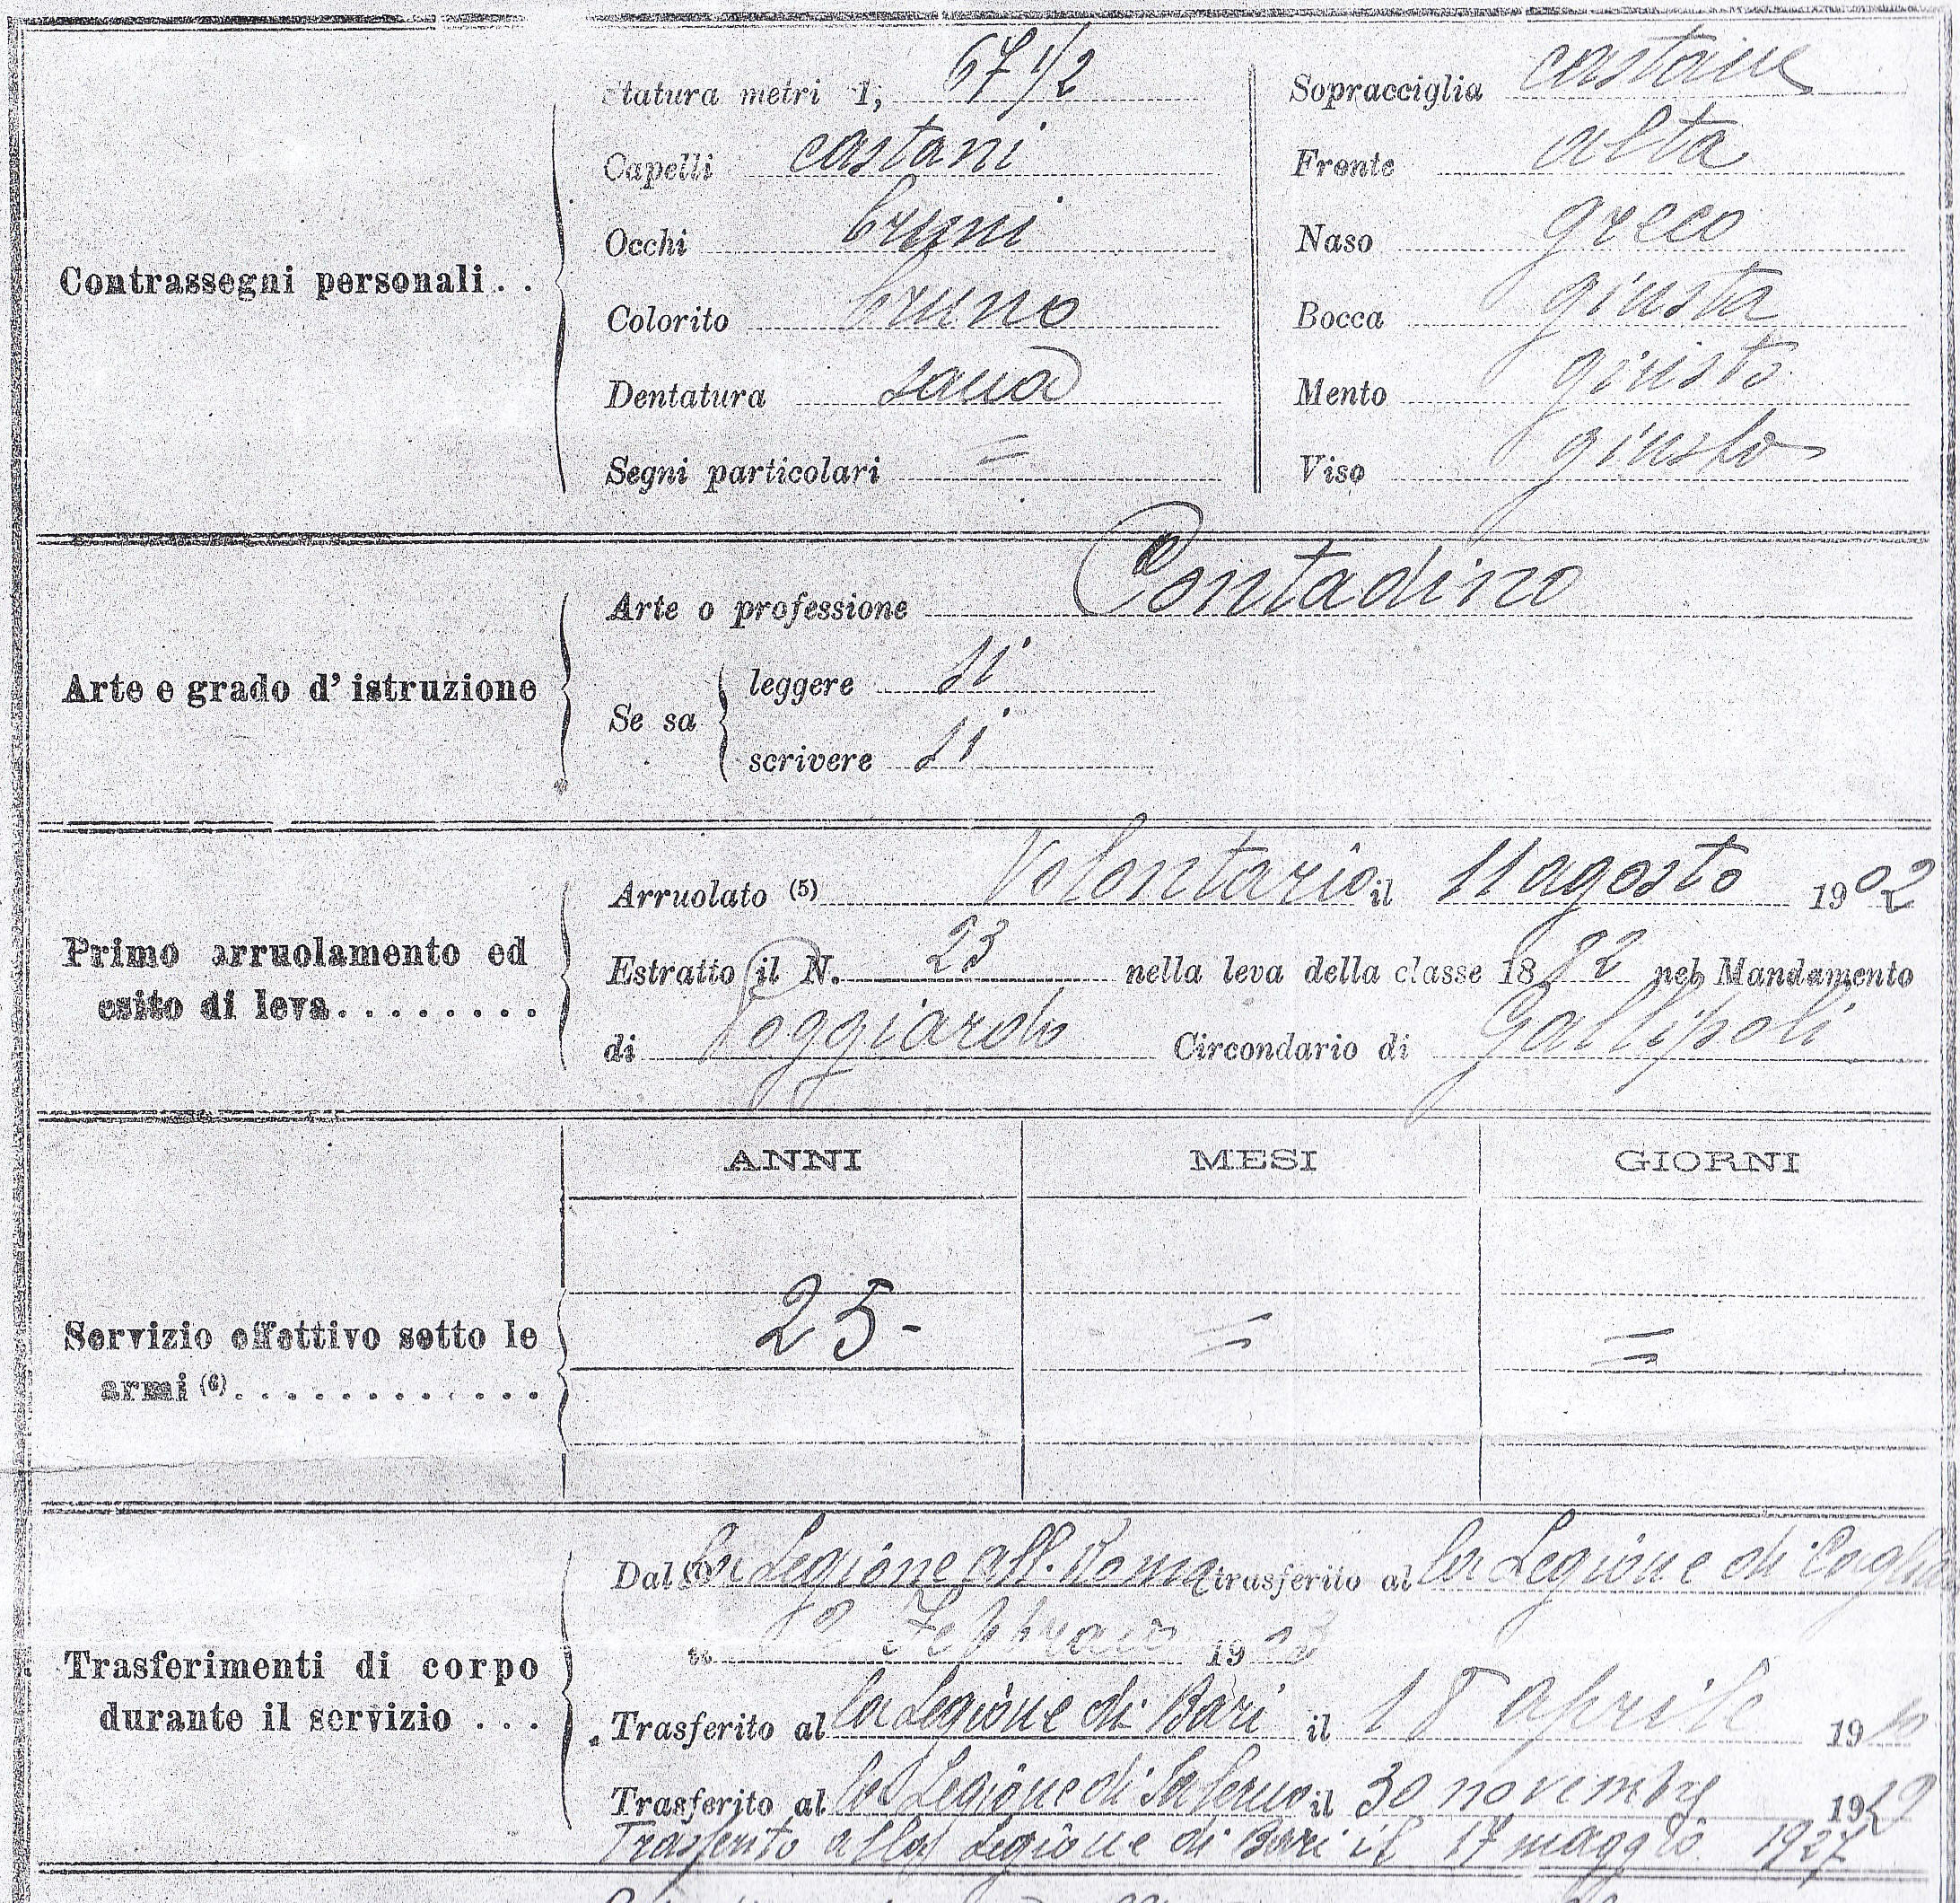 Contrassegni personali . .
statura metri 1, 67 1/2
Capelli castani
Occhi bruni
Colorito bruno
Dentatura sana
Segni particolari =
Sopracciglia castane
Fronte alta
Naso greco
Bocca giusta
Mento giusto
Viso giusto
Arte e grado d' istruzione
Arte o professione Contadino
Se sa
leggere si
scrivere si
Primo arruolamento ed
esito di leva. . . . . . . . .
Arruolato (5) Volontario il 11 agosto 1902
Estratto il N. 23 nella leva della classe 1882 nel Mandamento
di Poggiardo Circondario di Gallipoli
ANNI MESI GIORNI
Servizio effettivo sotto le
armi (6). . . . . . . . . . . . .
25 - = =
Trasferimenti di corpo
durante il servizio . . .
Dal la Legione all. Roma trasferito al la Legione di
Febbraio 19
Trasferito al la Legione di Bari il 18 aprile 19
Trasferito al la Legione di Salerno il 30 novembre 19
Trasferito alla Legione di Bari il 17 maggio 1927